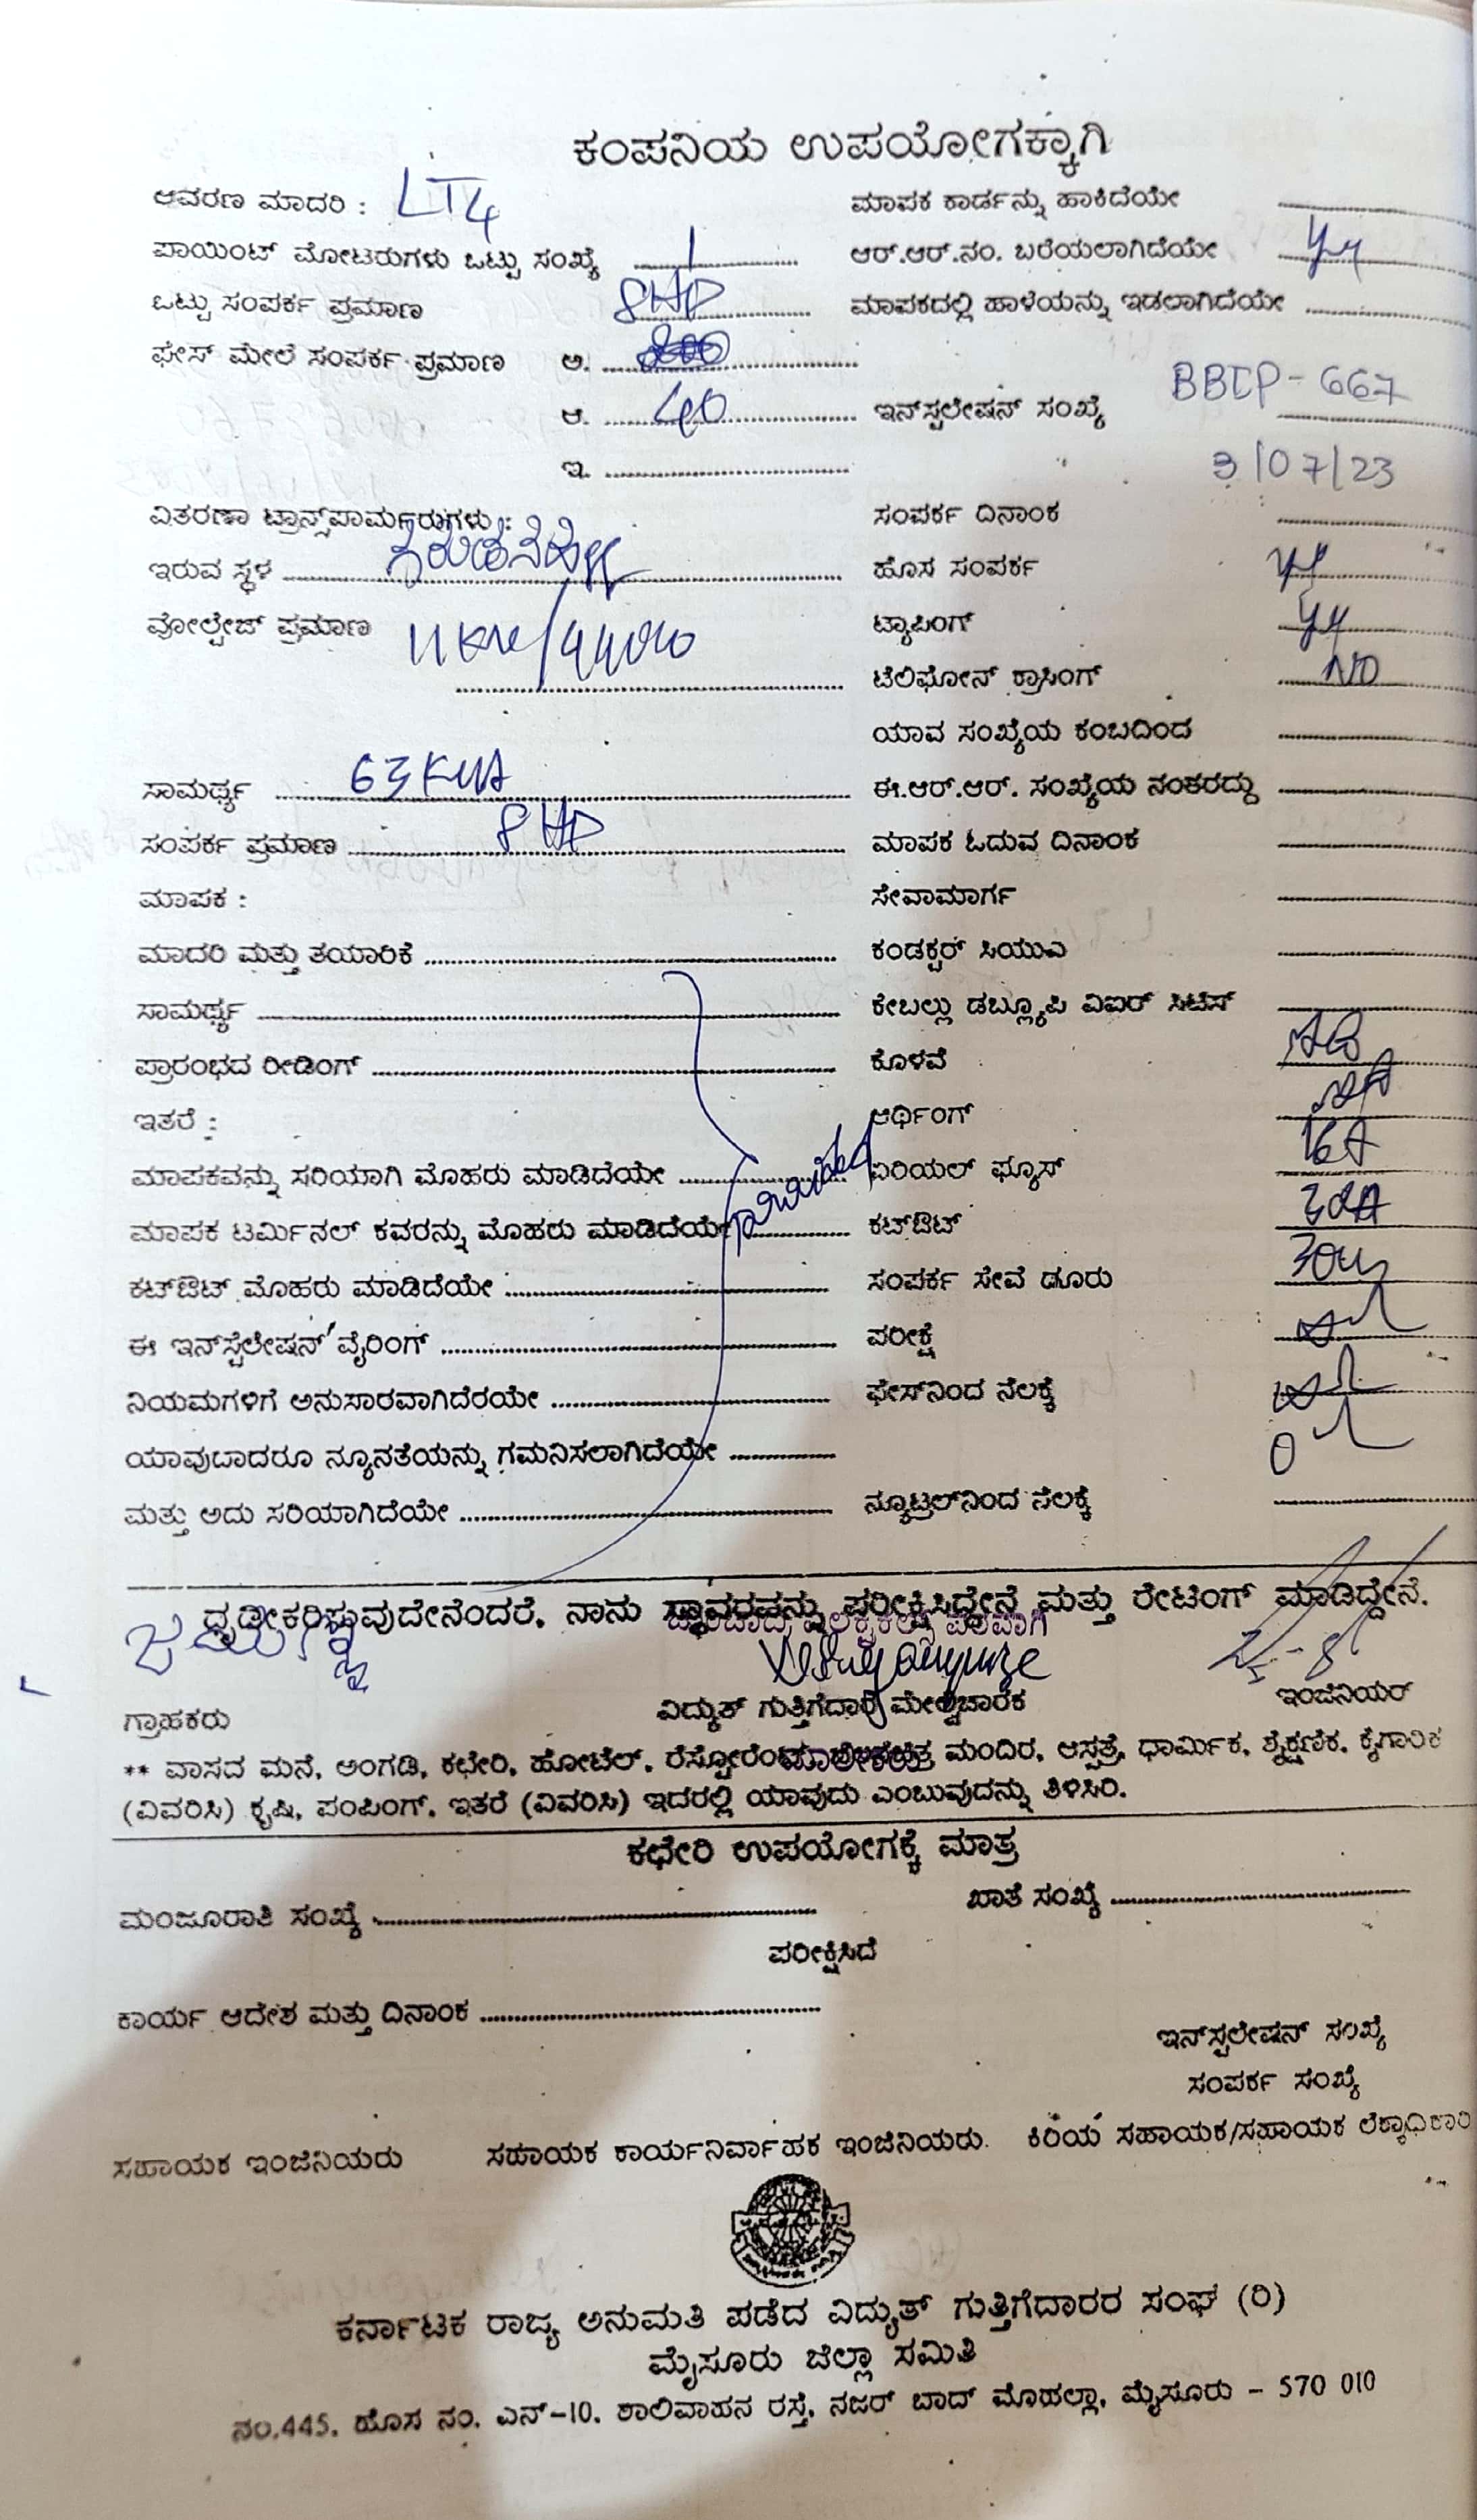 ಕಂಪನಿಯ ಉಪಯೋಗಕ್ಕಾಗಿ
ಆವರಣ ಮಾದರಿ : LT4 ಮಾಪಕ ಕಾರ್ಡನ್ನು ಹಾಕಿದೆಯೇ
ಪಾಯಿಂಟ್ ಮೋಟರುಗಳು ಒಟ್ಟು ಸಂಖ್ಯೆ 1 ಆರ್.ಆರ್.ನಂ. ಬರೆಯಲಾಗಿದೆಯೇ
ಒಟ್ಟು ಸಂಪರ್ಕ ಪ್ರಮಾಣ 8HP ಮಾಪಕದಲ್ಲಿ ಹಾಳೆಯನ್ನು ಇಡಲಾಗಿದೆಯೇ
ಫೇಸ್ ಮೇಲೆ ಸಂಪರ್ಕ ಪ್ರಮಾಣ ಅ.
ಆ. ಇನ್‌ಸ್ಟಲೇಷನ್ ಸಂಖ್ಯೆ BBIP-667
ಇ. 3/07/23
ವಿತರಣಾ ಟ್ರಾನ್ಸ್‌ಪಾರ್ಮರುಗಳು : ಸಂಪರ್ಕ ದಿನಾಂಕ
ಇರುವ ಸ್ಥಳ ಹೊಸ ಸಂಪರ್ಕ
ವೋಲ್ಟೇಜ್ ಪ್ರಮಾಣ ಟ್ಯಾಪಿಂಗ್
ಟೆಲಿಫೋನ್ ಕ್ರಾಸಿಂಗ್ NO
ಯಾವ ಸಂಖ್ಯೆಯ ಕಂಬದಿಂದ
ಸಾಮರ್ಥ್ಯ 63KVA ಈ.ಆರ್.ಆರ್. ಸಂಖ್ಯೆಯ ನಂತರದ್ದು
ಸಂಪರ್ಕ ಪ್ರಮಾಣ 8HP ಮಾಪಕ ಓದುವ ದಿನಾಂಕ
ಮಾಪಕ : ಸೇವಾಮಾರ್ಗ
ಮಾದರಿ ಮತ್ತು ತಯಾರಿಕೆ ಕಂಡಕ್ಟರ್ ಸಿಯುಎ
ಸಾಮರ್ಥ್ಯ ಕೇಬಲ್ಲು ಡಬ್ಲ್ಯೂಪಿ ವಿಐರ್ ಸಿಟಿಸ್
ಪ್ರಾರಂಭದ ರೀಡಿಂಗ್ ಕೊಳವೆ
ಇತರೆ : ಆರ್ಥಿಂಗ್
ಮಾಪಕವನ್ನು ಸರಿಯಾಗಿ ಮೊಹರು ಮಾಡಿದೆಯೇ ಏರಿಯಲ್ ಫ್ಯೂಸ್ 16A
ಮಾಪಕ ಟರ್ಮಿನಲ್ ಕವರನ್ನು ಮೊಹರು ಮಾಡಿದೆಯೇ ಕಟ್‌ಔಟ್
ಕಟ್‌ಔಟ್ ಮೊಹರು ಮಾಡಿದೆಯೇ ಸಂಪರ್ಕ ಸೇವೆ ಡೂರು
ಈ ಇನ್‌ಸ್ಟೆಲೇಷನ್ ವೈರಿಂಗ್ ಪರೀಕ್ಷೆ
ನಿಯಮಗಳಿಗೆ ಅನುಸಾರವಾಗಿದೆರಯೇ ಫೇಸ್‌ನಿಂದ ನೆಲಕ್ಕೆ
ಯಾವುದಾದರೂ ನ್ಯೂನತೆಯನ್ನು ಗಮನಿಸಲಾಗಿದೆಯೇ
ಮತ್ತು ಅದು ಸರಿಯಾಗಿದೆಯೇ ನ್ಯೂಟ್ರಲ್‌ನಿಂದ ನೆಲಕ್ಕೆ
ಧೃಡೀಕರಿಸುವುದೇನೆಂದರೆ, ನಾನು ಸ್ಥಾವರವನ್ನು ಪರೀಕ್ಷಿಸಿದ್ದೇನೆ ಮತ್ತು ರೇಟಿಂಗ್ ಮಾಡಿದ್ದೇನೆ.
ಗ್ರಾಹಕರು ವಿದ್ಯುತ್ ಗುತ್ತಿಗೆದಾರ/ಮೇಲ್ವಿಚಾರಕ ಇಂಜಿನಿಯರ್
** ವಾಸದ ಮನೆ, ಅಂಗಡಿ, ಕಛೇರಿ, ಹೋಟೆಲ್, ಮಂದಿರ, ಆಸ್ಪತ್ರೆ, ಧಾರ್ಮಿಕ, ಶೈಕ್ಷಣಿಕ, ಕೈಗಾರಿಕ
(ವಿವರಿಸಿ) ಕೃಷಿ, ಪಂಪಿಂಗ್, ಇತರೆ (ವಿವರಿಸಿ) ಇದರಲ್ಲಿ ಯಾವುದು ಎಂಬುವುದನ್ನು ತಿಳಿಸಿರಿ.
ಕಛೇರಿ ಉಪಯೋಗಕ್ಕೆ ಮಾತ್ರ
ಮಂಜೂರಾತಿ ಸಂಖ್ಯೆ ಖಾತೆ ಸಂಖ್ಯೆ
ಪರೀಕ್ಷಿಸಿದೆ
ಕಾರ್ಯ ಆದೇಶ ಮತ್ತು ದಿನಾಂಕ
ಇನ್‌ಸ್ಟಲೇಷನ್ ಸಂಖ್ಯೆ
ಸಂಪರ್ಕ ಸಂಖ್ಯೆ
ಸಹಾಯಕ ಇಂಜಿನಿಯರು ಸಹಾಯಕ ಕಾರ್ಯನಿರ್ವಾಹಕ ಇಂಜಿನಿಯರು. ಕಿರಿಯ ಸಹಾಯಕ/ಸಹಾಯಕ ಲೆಕ್ಕಾಧಿಕಾರಿ
ಕರ್ನಾಟಕ ರಾಜ್ಯ ಅನುಮತಿ ಪಡೆದ ವಿದ್ಯುತ್ ಗುತ್ತಿಗೆದಾರರ ಸಂಘ (ರಿ)
ಮೈಸೂರು ಜಿಲ್ಲಾ ಸಮಿತಿ
ನಂ.445, ಹೊಸ ನಂ. ಎನ್-10, ಶಾಲಿವಾಹನ ರಸ್ತೆ, ನಜರ್ ಬಾದ್ ಮೊಹಲ್ಲಾ, ಮೈಸೂರು - 570 010